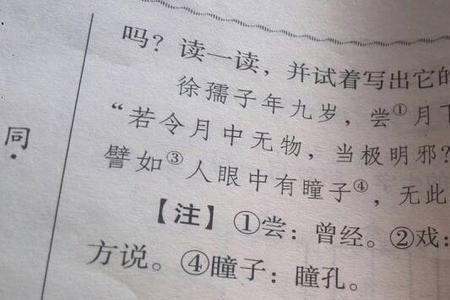 吗？读一读，并试着写出它的
徐孺子年九岁，尝①月下
“若令月中无物，当极明邪？
譬如③人眼中有瞳子④，无此
同。
【注】①尝：曾经。②戏：
方说。④瞳子：瞳孔。